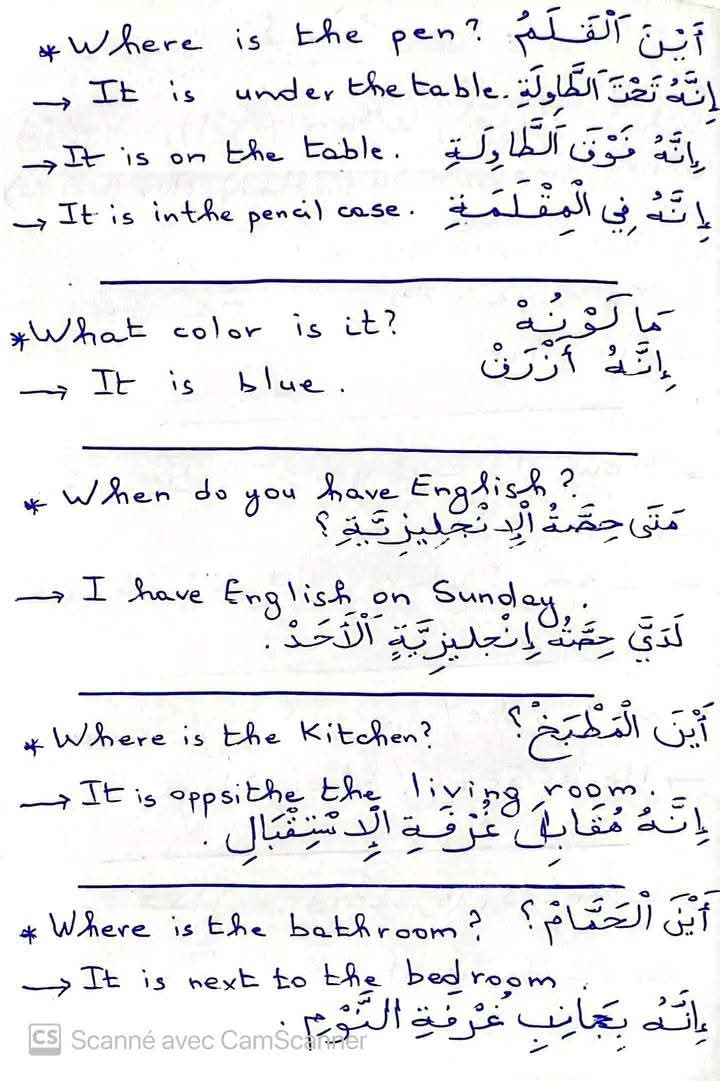 * Where is the pen? أَيْنَ اَلْقَلَمُ
→ It is under the table. إِنَّهُ تَحْتَ اَلطَّاوِلَةِ
→ It is on the table. إِنَّهُ فَوْقَ اَلطَّاوِلَةِ
→ It is in the pencil case. إِنَّهُ فِي الْمِقْلَمَةِ
* What color is it? مَا لَوْنُهْ
→ It is blue. إِنَّهُ أَزْرَقْ
* When do you have English?
مَتَى حِصَّةُ اَلْإِنْجِلِيزِيَّةِ؟
→ I have English on Sunday.
لَدَيَّ حِصَّةُ إِنْجليزِيَّةٍ اَلْأَحَدْ.
* Where is the Kitchen? أَيْنَ الْمَطْبَخْ؟
→ It is oppsithe the living room.
إِنَّهُ مُقَابِلَ غُرْفَةِ الْإِسْتِقْبَالِ.
* Where is the bathroom? أَيْنَ الْحَمَّامْ؟
→ It is next to the bedroom.
إِنَّهُ بِجَانِبِ غُرْفَةِ النَّوْمِ.
CS Scanné avec CamScanner